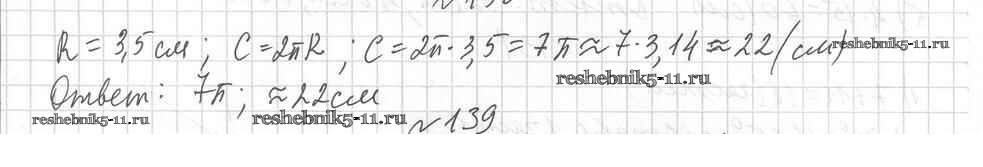 R = 3,5 см; C = 2πR; C = 2π·3,5 = 7π ≈ 7·3,14 ≈ 22 (см)
reshebnik5-11.ru
reshebnik5-11.ru
Ответ: 7π; ≈ 22 см
reshebnik5-11.ru
reshebnik5-11.ru
№ 139